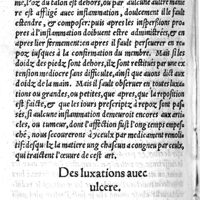 me, l'oz du talon est dehors, ou par aulcune aultre manie
re est affligé auec inflammation, doulcement il le fault
estendre, & composer: puis apres les inspersions pro
pres à l'inflammation doibuent estre administrées, & en
apres lier fermement: en apres il fault preseruer en re
poz iusques à la confirmation du membre. Mais si les
doidz des piedz sont dehors, ilz sont restitués par ex
tension mediocre sans difficulté, ainsi que auons dict aux
doidz de la main. Mais il fault obseruer en toutes luxa
tions ou grandes, ou petites, que apres, que la reposition
est faicte, & que les iours prescriptz à repoz sont pas
sés, si aulcune inflammation demeuroit encore aux arti
cles, ou tumeur, dont l'affliction fust long temps empes
ché, nous secourerons à yceulx par medicament remolli
tif desquelz la matiere ung chascun a congneu par ceulx,
qui traictent l'œuure de cest art.
Des luxations auec
ulcere.